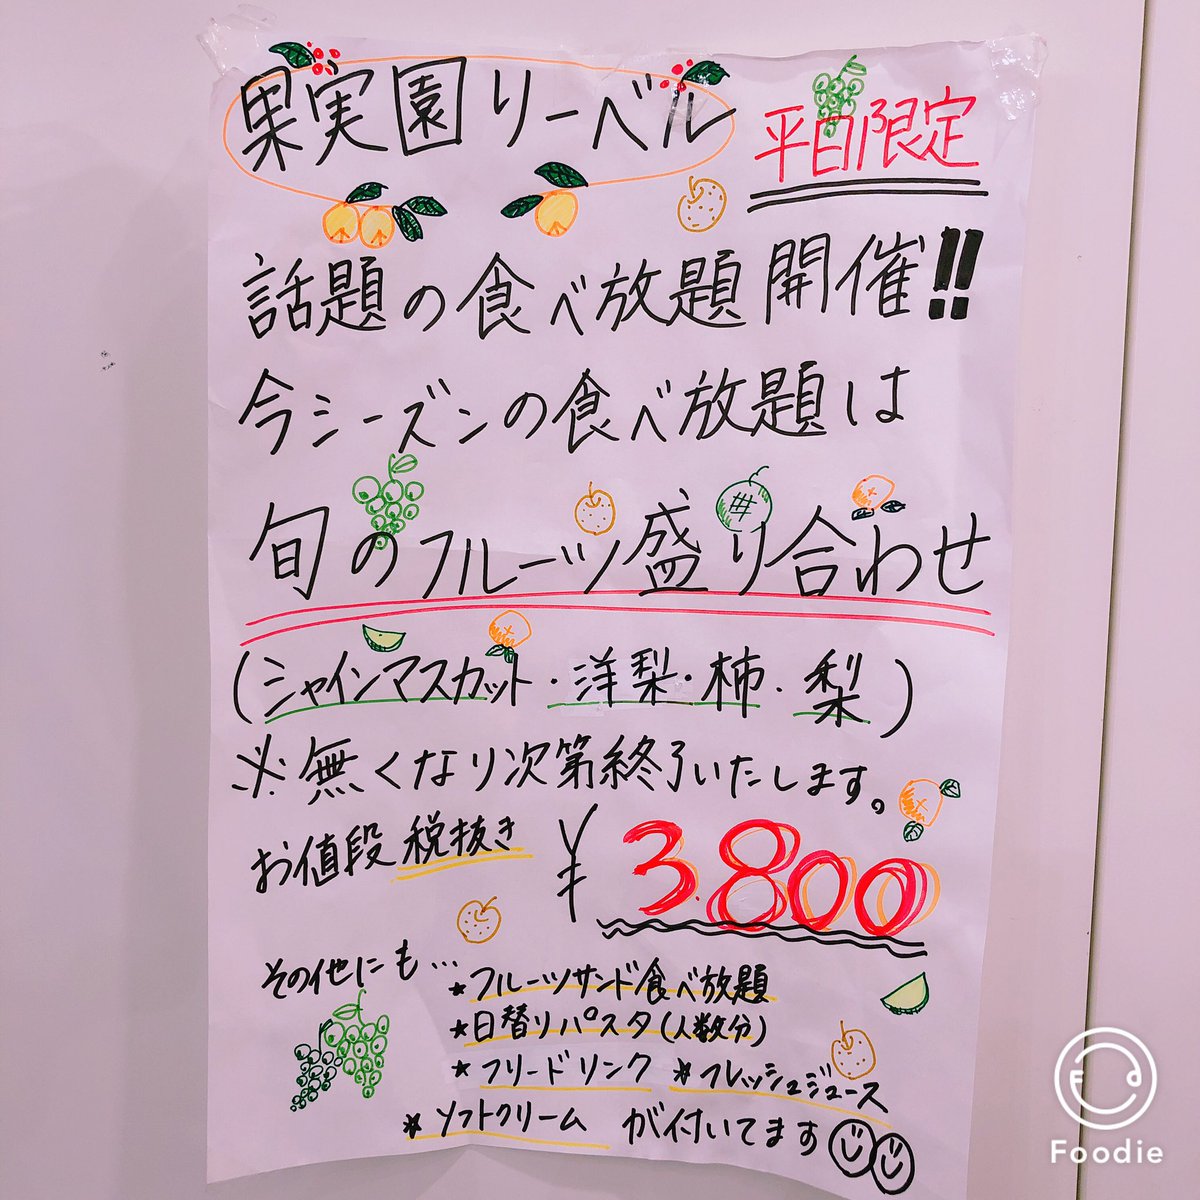 果実園リーベル
平日限定
話題の食べ放題開催!!
今シーズンの食べ放題は
旬のフルーツ盛り合わせ
(シャインマスカット・洋梨・柿・梨)
※無くなり次第終了いたします。
お値段 税抜き ¥3.800
その他にも…
★フルーツサンド食べ放題
★日替りパスタ(人数分)
★フリードリンク ★フレッシュジュース
★ソフトクリーム が付いてます
Foodie